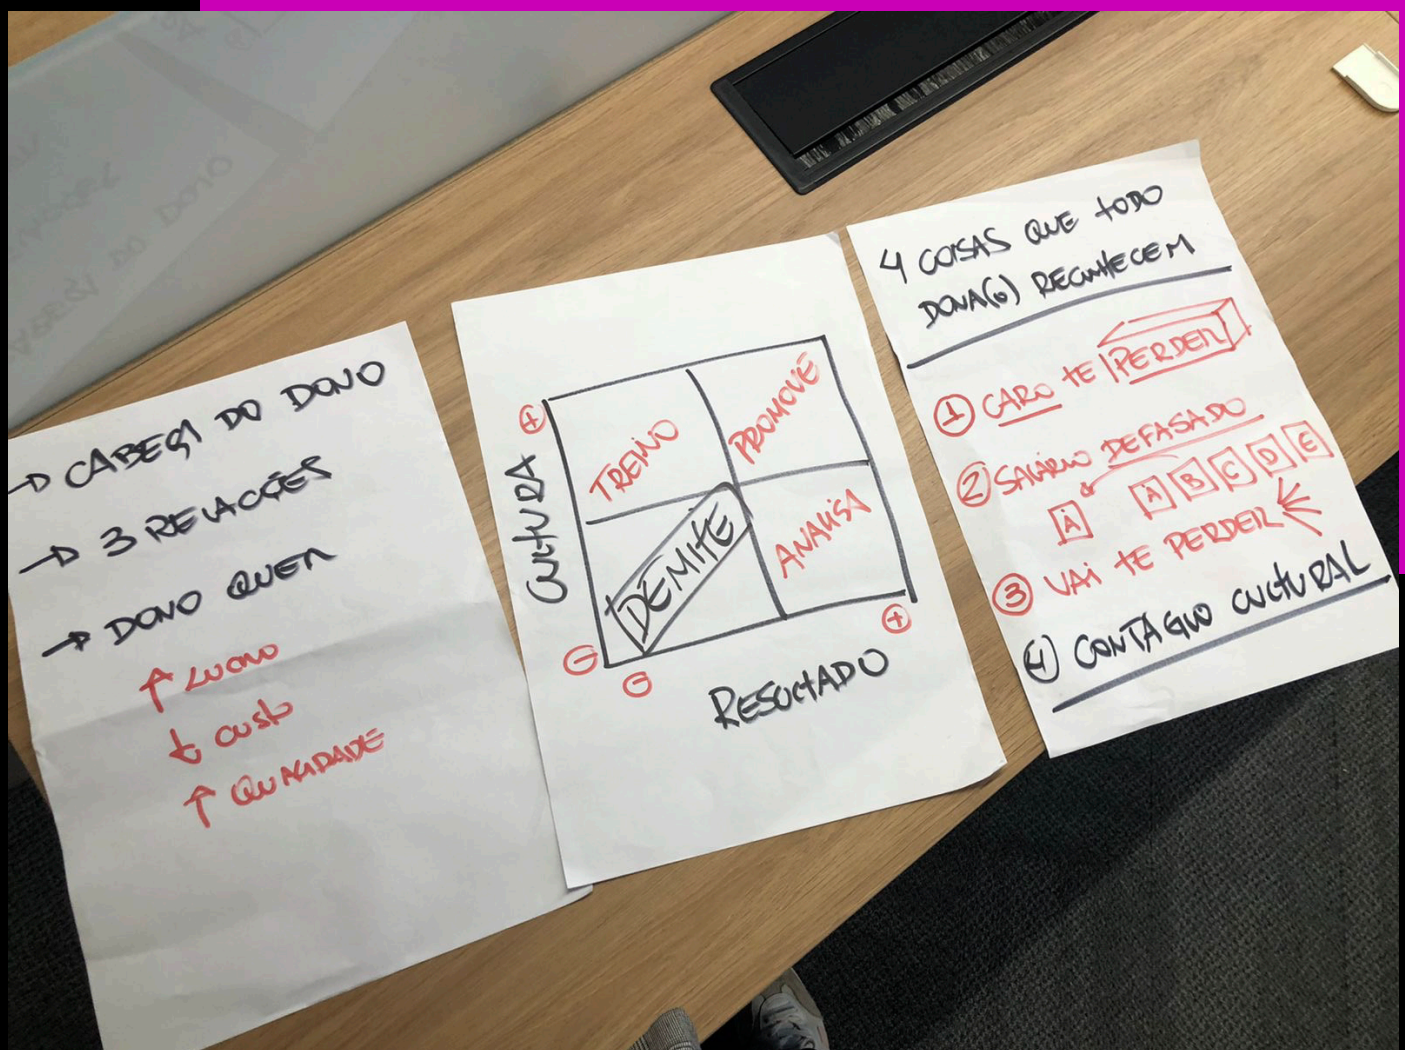 → CABEÇA DO DONO
→ 3 RELAÇÕES
→ DONO QUER
↑ LUCRO
↓ CUSTO
↑ QUALIDADE
CULTURA
+
TREINO
PROMOVE
DEMITE
ANALISA
-
-
+
RESULTADO
4 COISAS QUE TODO
DONA(O) RECONHECEM
1 CARO TE PERDER
2 SALÁRIO DEFASADO
A A B C D E
3 VAI TE PERDER
4 CONTÁGIO CULTURAL